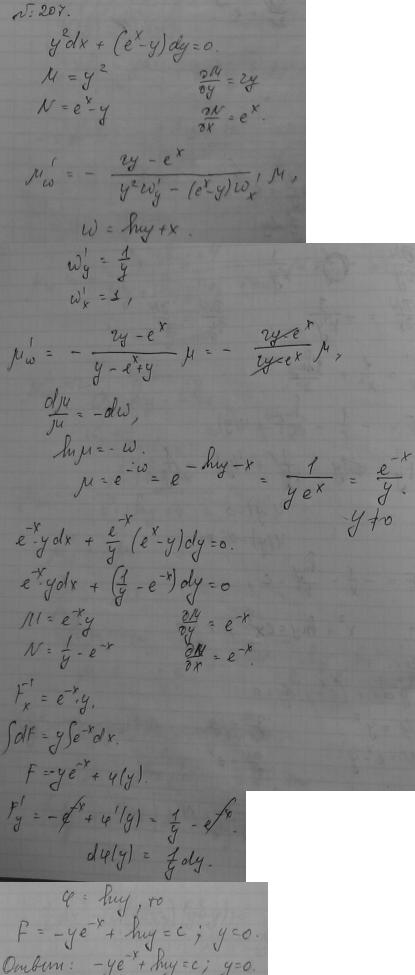 № 207.
y²dx + (eˣ-y)dy=0.
M = y² ∂M/∂y = 2y
N = eˣ-y ∂N/∂x = eˣ.
μ'_ω = - (2y - eˣ)/(y²ω'_y - (eˣ-y)ω'_x) μ,
ω = lny + x.
ω'_y = 1/y
ω'_x = 1,
μ'_ω = - (2y - eˣ)/(y - eˣ + y) μ = - (2y-eˣ)/(2y-eˣ) μ,
dμ/μ = -dω,
lnμ = -ω.
μ = e^(-ω) = e^(-lny-x) = 1/(yeˣ) = e⁻ˣ/y.
y≠0
e⁻ˣ·ydx + e⁻ˣ/y (eˣ-y)dy=0.
e⁻ˣ·ydx + (1/y - e⁻ˣ)dy=0
M = e⁻ˣ·y ∂M/∂y = e⁻ˣ
N = 1/y - e⁻ˣ ∂N/∂x = e⁻ˣ.
F'_x = e⁻ˣ·y,
∫dF = y∫e⁻ˣdx.
F = -ye⁻ˣ + φ(y).
F'_y = -e⁻ˣ + φ'(y) = 1/y - e⁻ˣ.
dφ(y) = 1/y dy.
φ = lny, то
F = -ye⁻ˣ + lny = c; y=0.
Ответ: -ye⁻ˣ + lny = c; y=0.